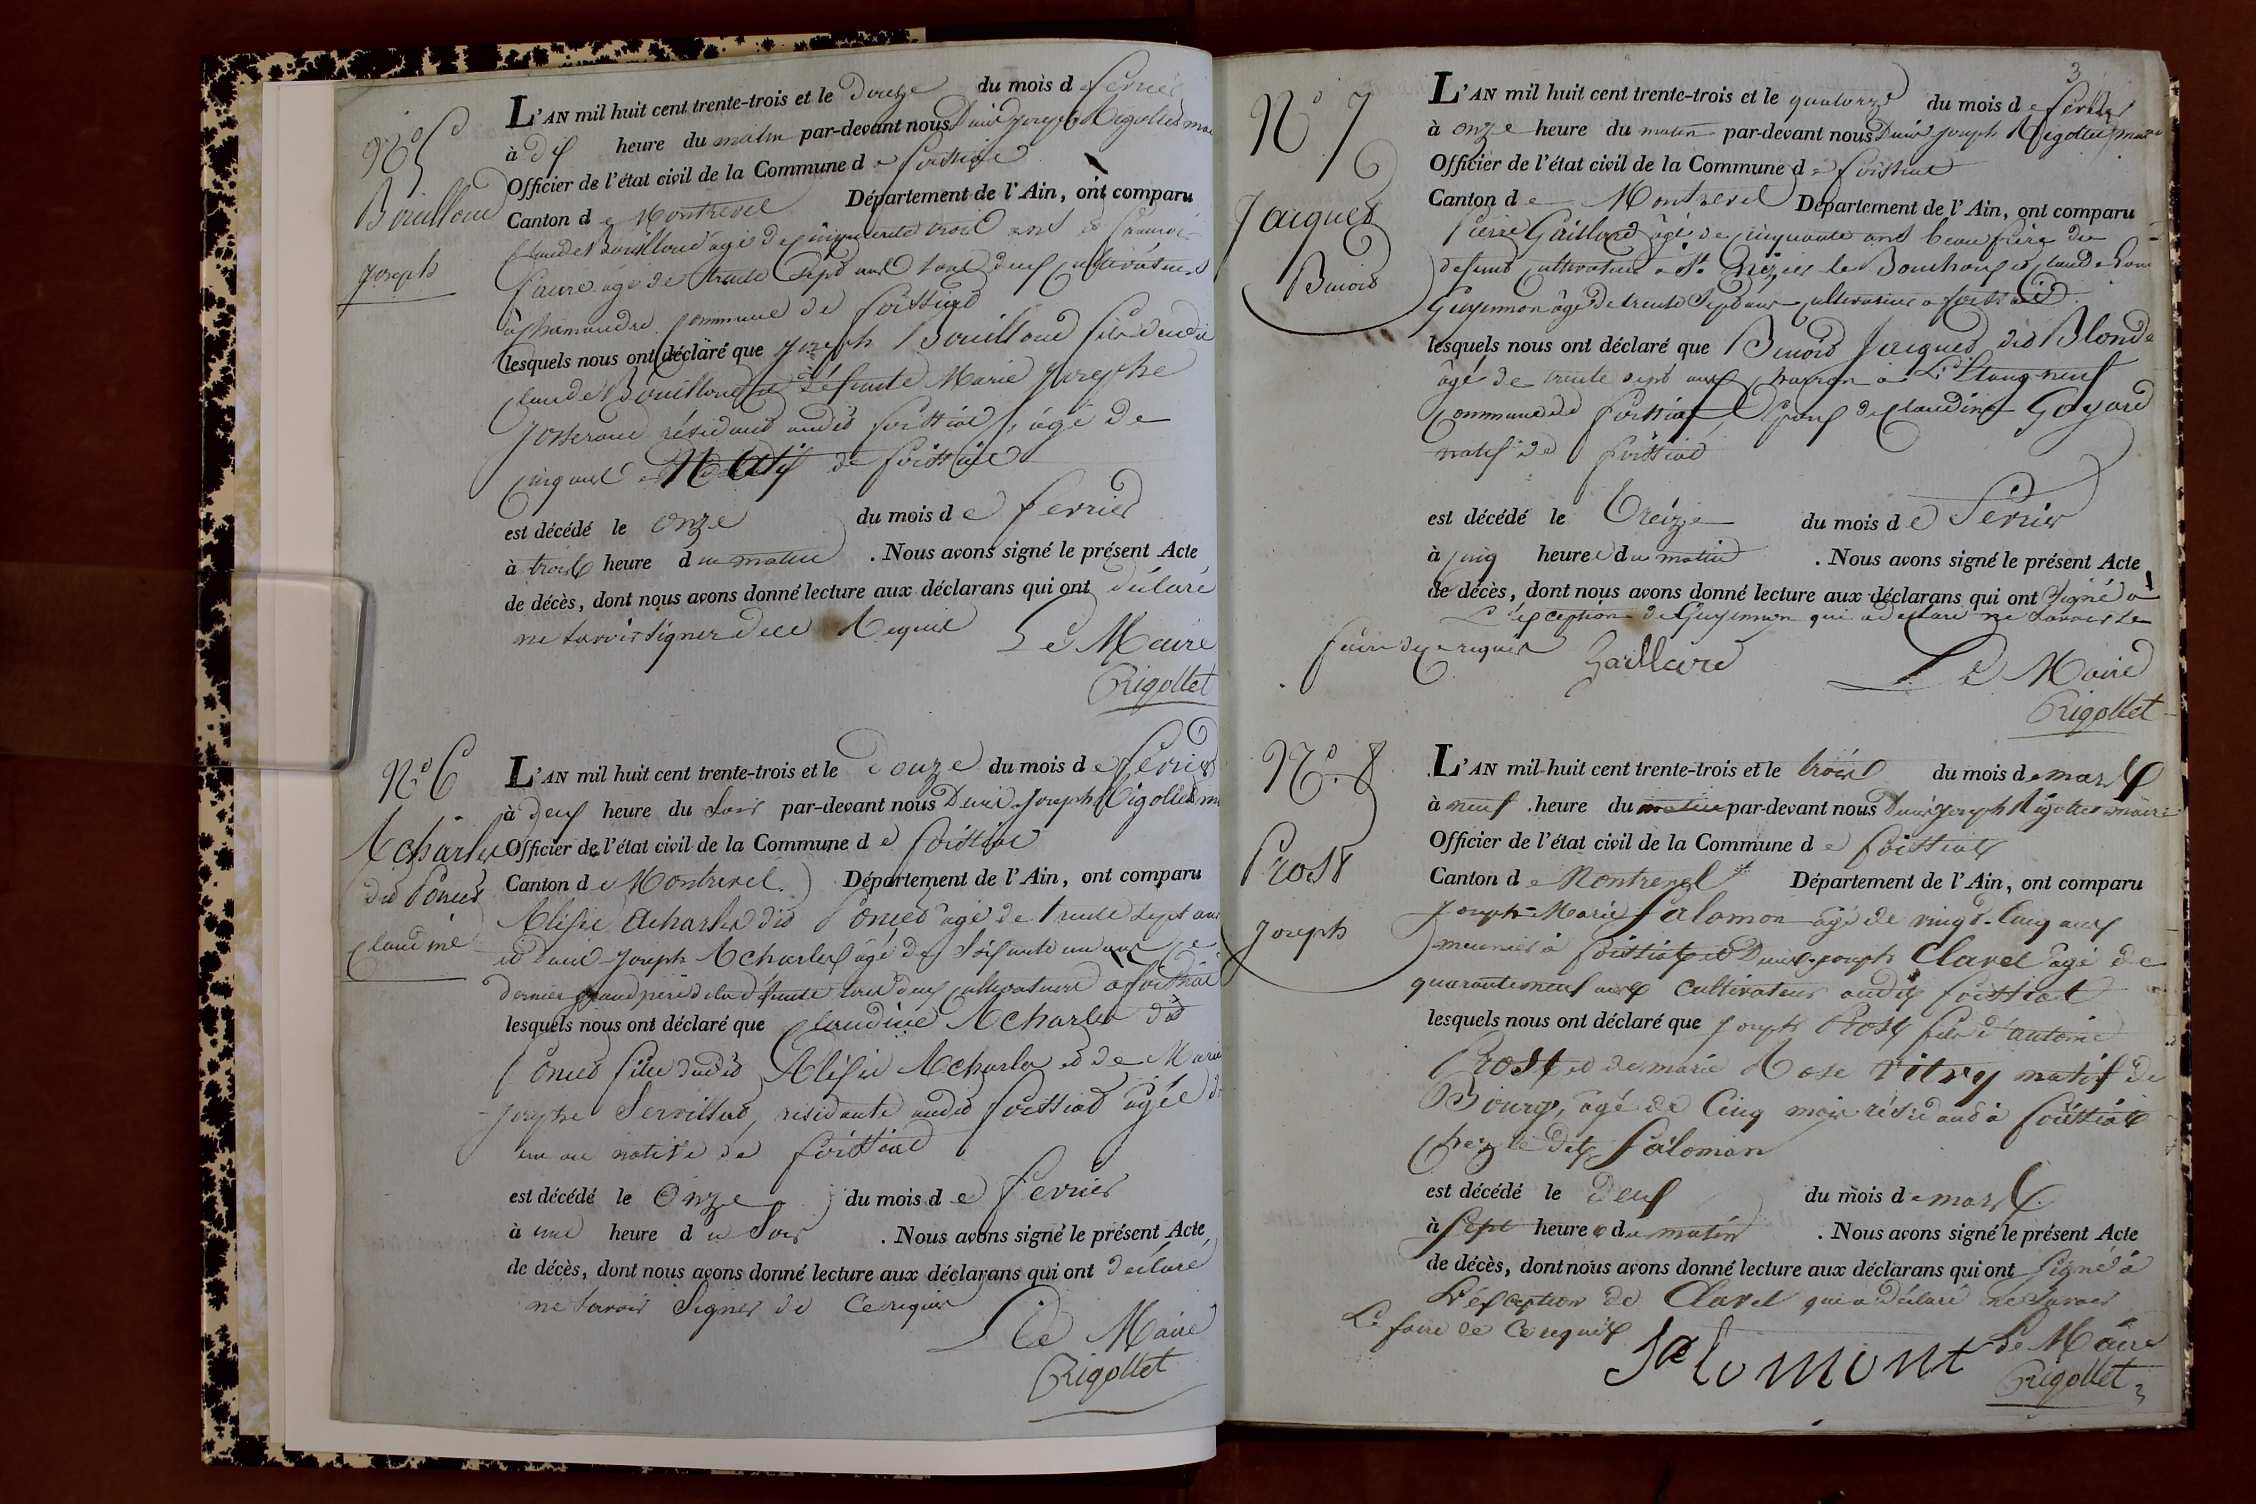 N.° 5
Bouilloud
Joseph
L'AN mil huit cent trente-trois et le douze du mois de fevrier
à dix heure du matin par-devant nous Denis Joseph Rigollet mai
Officier de l'état civil de la Commune de foissiat
Canton de Montrevel Département de l'Ain, ont comparu
Claude Bouilloud agé de cinquante trois ans et
faure agé de trente sept ans tous deux cultivateurs
commune de foissiat
lesquels nous ont déclaré que Joseph Bouilloud fils dudit
Claude Bouilloud et défunte Marie Josephe
Josserand résidant audit foissiat, âgé de
cinq ans Natif de foissiat
est décédé le onze du mois de fevrier
à trois heure du matin . Nous avons signé le présent Acte
de décès, dont nous avons donné lecture aux déclarans qui ont déclaré
ne savoir signer de ce Requis
Le Maire
Rigollet
N.° 6
Acharles
dit Poncet
Claudine
L'AN mil huit cent trente-trois et le Douze du mois de février
à deux heure du Soir par-devant nous Denis Joseph Rigollet m
Officier de l'état civil de la Commune de foissiat
Canton de Montrevel Département de l'Ain, ont comparu
Alexis Acharles dit Poncet agé de trente sept ans
et Denis Joseph Acharles âgé de Soixante un ans Ce
dernier grand pere de la défunte tous deux cultivateurs a foissiat
lesquels nous ont déclaré que Claudine Acharles dit
Poncet fille dudit Alexis Acharles et de Marie
Josephe Servillat, residante audit foissiat âgée d
un an native de foissiat
est décédé le Onze du mois de fevrier
à une heure du Soir . Nous avons signé le présent Acte
de décès, dont nous avons donné lecture aux déclarans qui ont déclaré
ne Savoir Signer de Ce requis
Le Maire
Rigollet
3
N° 7
Jacquet
Benoit
L'AN mil huit cent trente-trois et le quatorze du mois de février
à onze heure du matin par-devant nous Denis Joseph Rigollet maire
Officier de l'état civil de la Commune de foissiat
Canton de Montrevel Département de l'Ain, ont comparu
Pierre Gaillard âgé de cinquante ans beau frère du
defunt cultivateur a St Nizier le Bouchoux et Claude
Guyennon âgé de trente Sept ans cultivateur a foissiat
lesquels nous ont déclaré que Benoit Jacquet dit Blonde
âgé de trente sept ans charron a L'Etang neuf
commune de foissiat, Epoux de Claudine Goyard
natif de foissiat
est décédé le treize du mois de Février
à cinq heure du matin . Nous avons signé le présent Acte
de décès, dont nous avons donné lecture aux déclarans qui ont Signé à
L'exception de Guyennon qui a déclaré ne Savoir Le
faire de ce requis Gaillard
Le Maire
Rigollet
N.° 8
Prost
Joseph
L'AN mil huit cent trente-trois et le trois du mois de mars
à neuf heure du matin par-devant nous Denis Joseph Rigollet maire
Officier de l'état civil de la Commune de foissiat
Canton de Montrevel Département de l'Ain, ont comparu
Joseph-Marie Salomon agé de vingt-Cinq ans
meunier à foissiat et Denis Joseph Clavel agé de
quarante neuf ans Cultivateur audit foissiat
lesquels nous ont déclaré que Joseph Prost fils d'antoine
Prost et de marie Rose Vitry natif de
Bourg, âgé de Cinq mois résidant à foissiat
chez le dit Salomon
est décédé le deux du mois de mars
à Sept heure du matin . Nous avons signé le présent Acte
de décès, dont nous avons donné lecture aux déclarans qui ont Signé à
L'exception de Clavel qui a déclaré ne Savoir
Le faire de Ce requis
Salomont
Le Maire
Rigollet